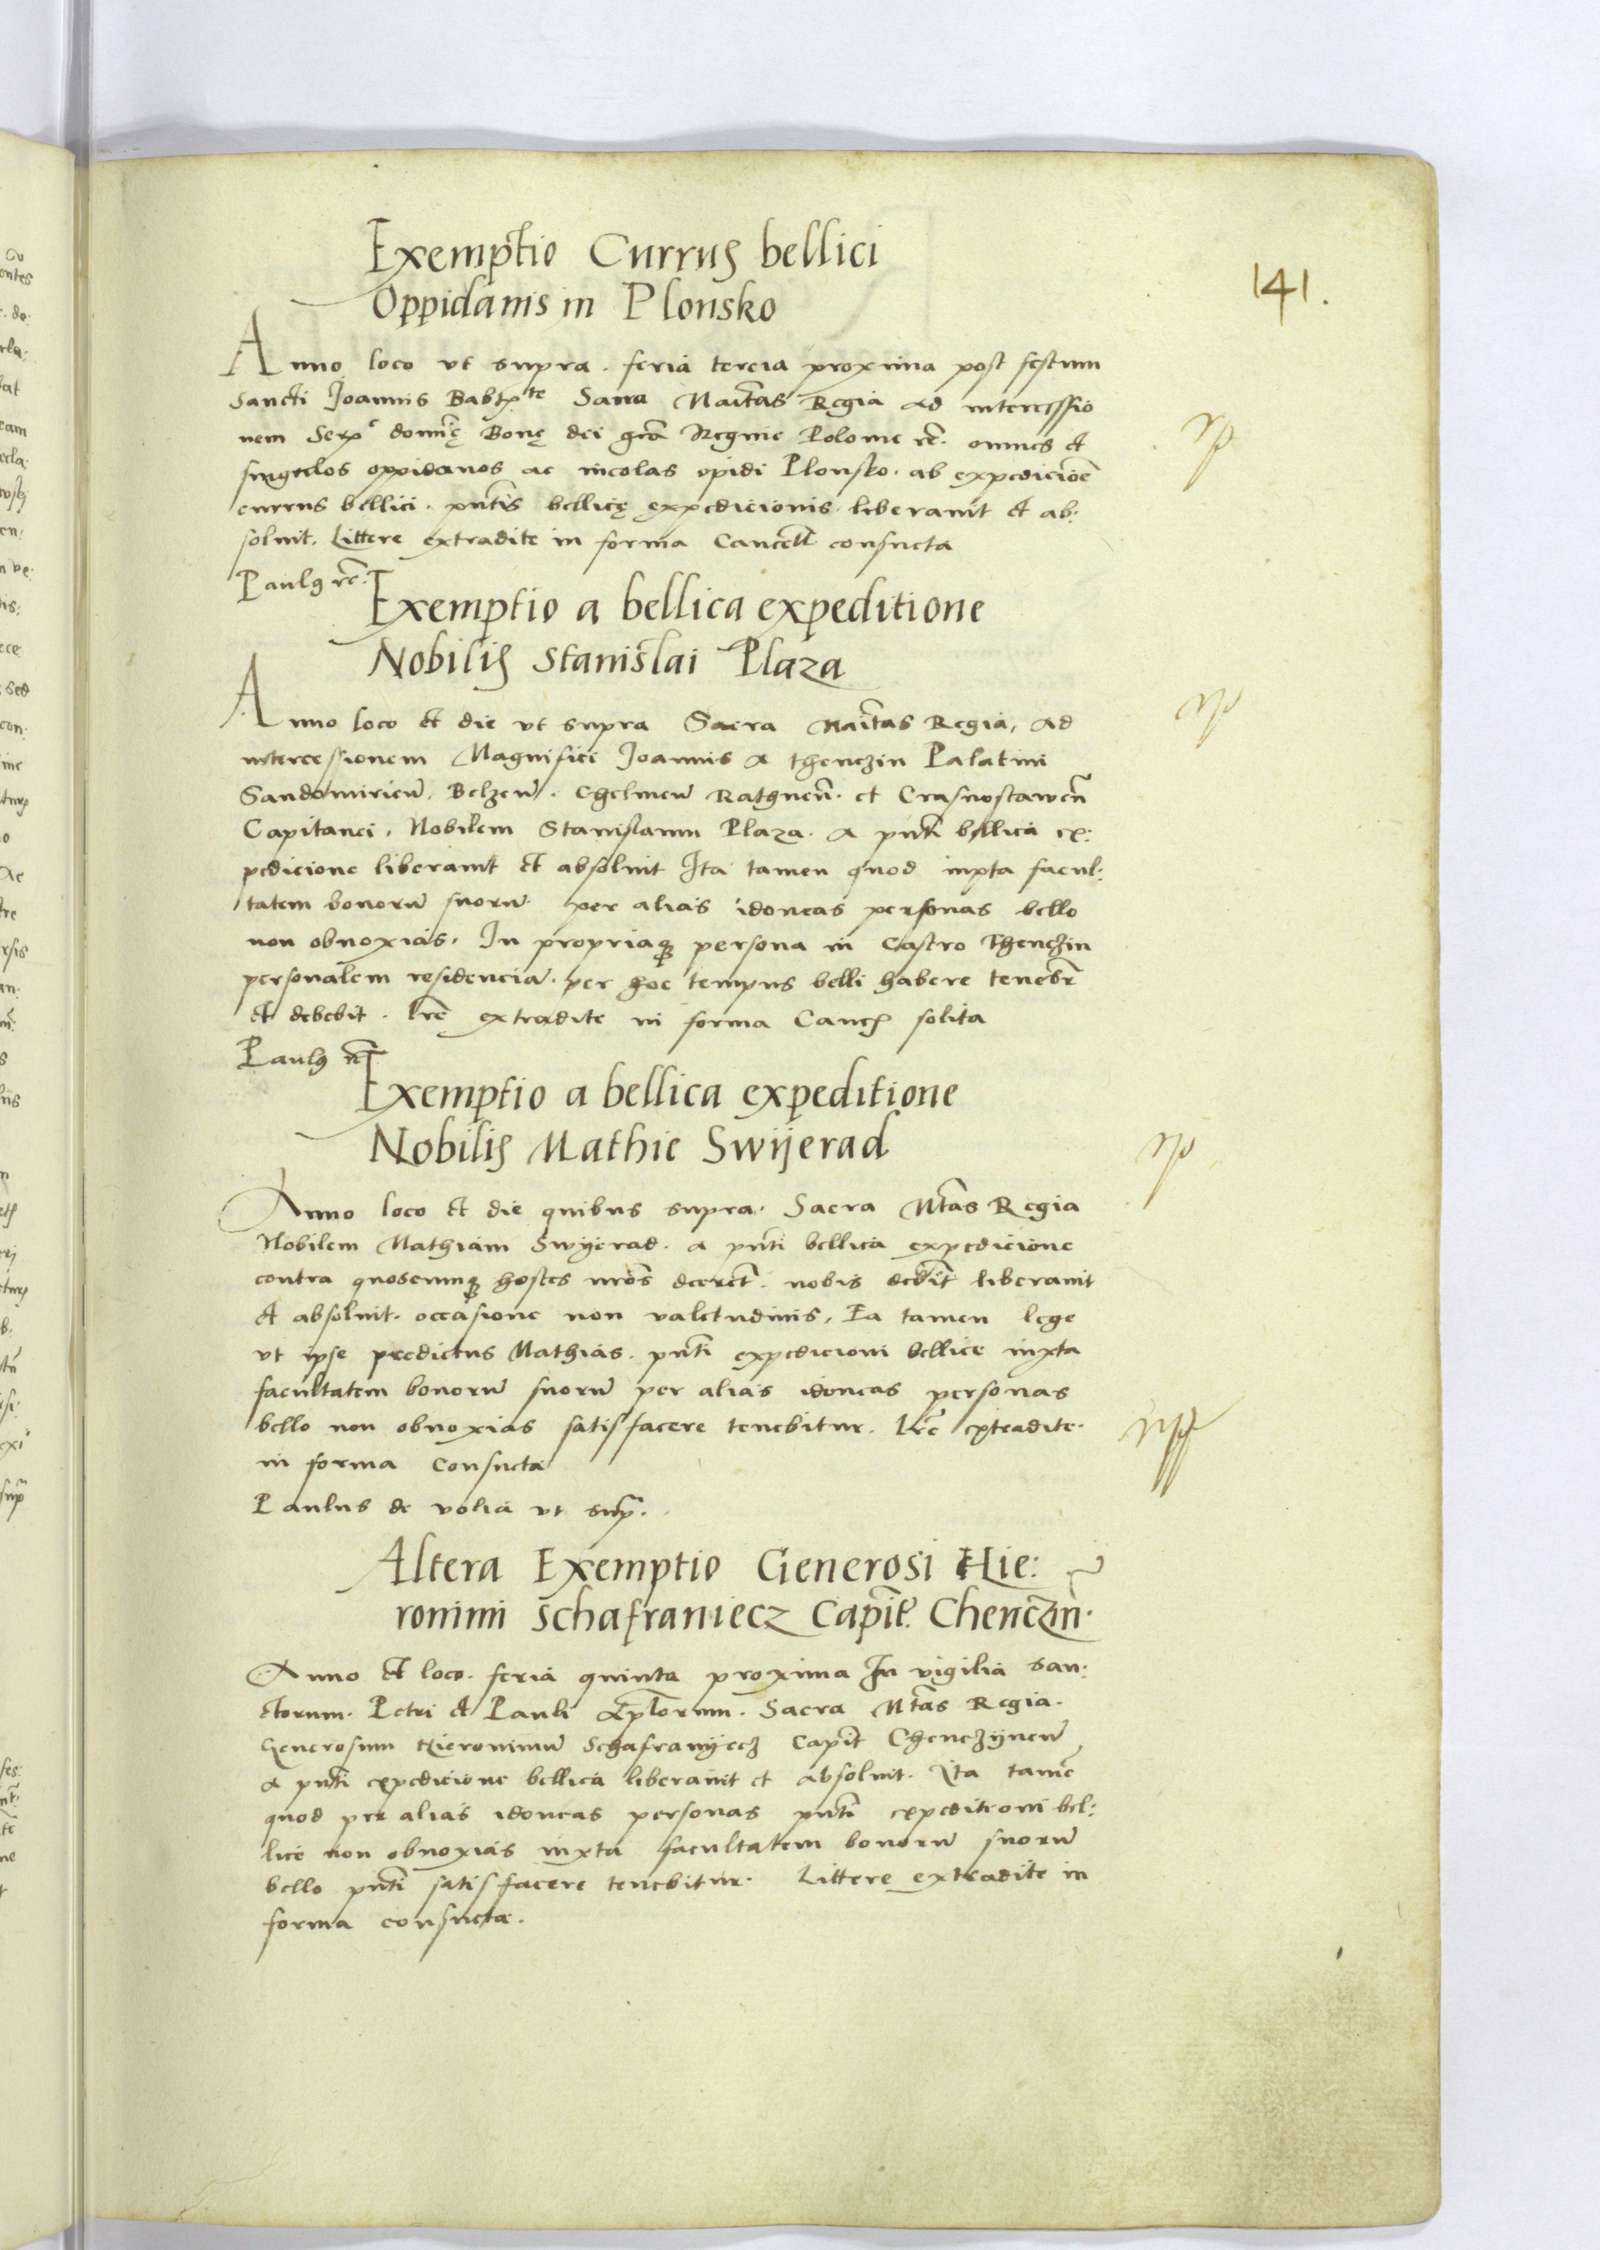 141.
Exemptio Currus bellici
Oppidanis in Plonsko
Anno loco vt supra . feria tercia proxima post festum
Sancti Joannis Babtꝑte Sacra Maiẽtas Regia ad intercessio
nem Serꝑe domnẽ Bonę dei grã Regine Polonie rẽ. omnes et
singulos oppidanos ac incolas opidi Plonsko . ab expedicioẽ
currus bellici . pñtis bellicę expedicionis liberauit et ab:
soluit . Littere extradite in forma Cancell consueta
Paulus rẽ.
Exemptio a bellica expeditione
Nobilis Stanislai Plaza
Anno loco et die vt supra Sacra Maiẽtas Regia, ad
intercessionem Magnifici Joannis a Thenczin Palatini
Sandomirieñ . Belzeñ . Chelmeñ Rathneñ . et Crasnostawieñ
Capitanei . Nobilem Stanislaum Plaza . a pñti bellica ex:
pedicione liberauit et absoluit Ita tamen quod iuxta facul:
tatem bonorũ suorũ per alias idoneas personas bello
non obnoxias . In propriaqꝫ persona in Castro Thenczin
personalem residenciã . per hoc tempus belli habere tenebr̃
et debebit . Lrẽ extradite in forma Canc solita
Paulus rẽ
Exemptio a bellica expeditione
Nobilis Mathie Swijerad
Anno loco et die quibus supra . Sacra Mtãs Regia
Nobilem Mathiam Swyerad . a pñti bellica expedicione
contra quoscumqꝫ hostes nrõs decret . nobis debit liberauit
et absoluit . occasione non valetudinis, Ea tamen lege
vt ipse predictus Mathias . pñti expedicioni bellice iuxta
facultatem bonorũ suorũ per alias idoneas personas
bello non obnoxias satisfacere tenebitur . Lrẽ extradite .
in forma Consueta
Paulus de Volia vt sup̃ .
Altera Exemptio Generosi Hie:
ronimi Schafraniecz Capit̃. Chenczin .
Anno et loco . feria quinta proxima In vigilia san:
ctorum . Petri et Pauli Ap̃lorum . Sacra Mtãs Regia .
Generosum Hieronimũ Schafranyecz Capit̃ Chenczyneñ
a pñti expedicione bellica liberauit et absoluit . Ita tamẽ
quod per alias idoneas personas pñti expeditioni bel:
lice non obnoxias iuxta facultatem bonorũ suorũ
bello pñti satisfacere tenebitur . Littere extradite in
forma consueta .